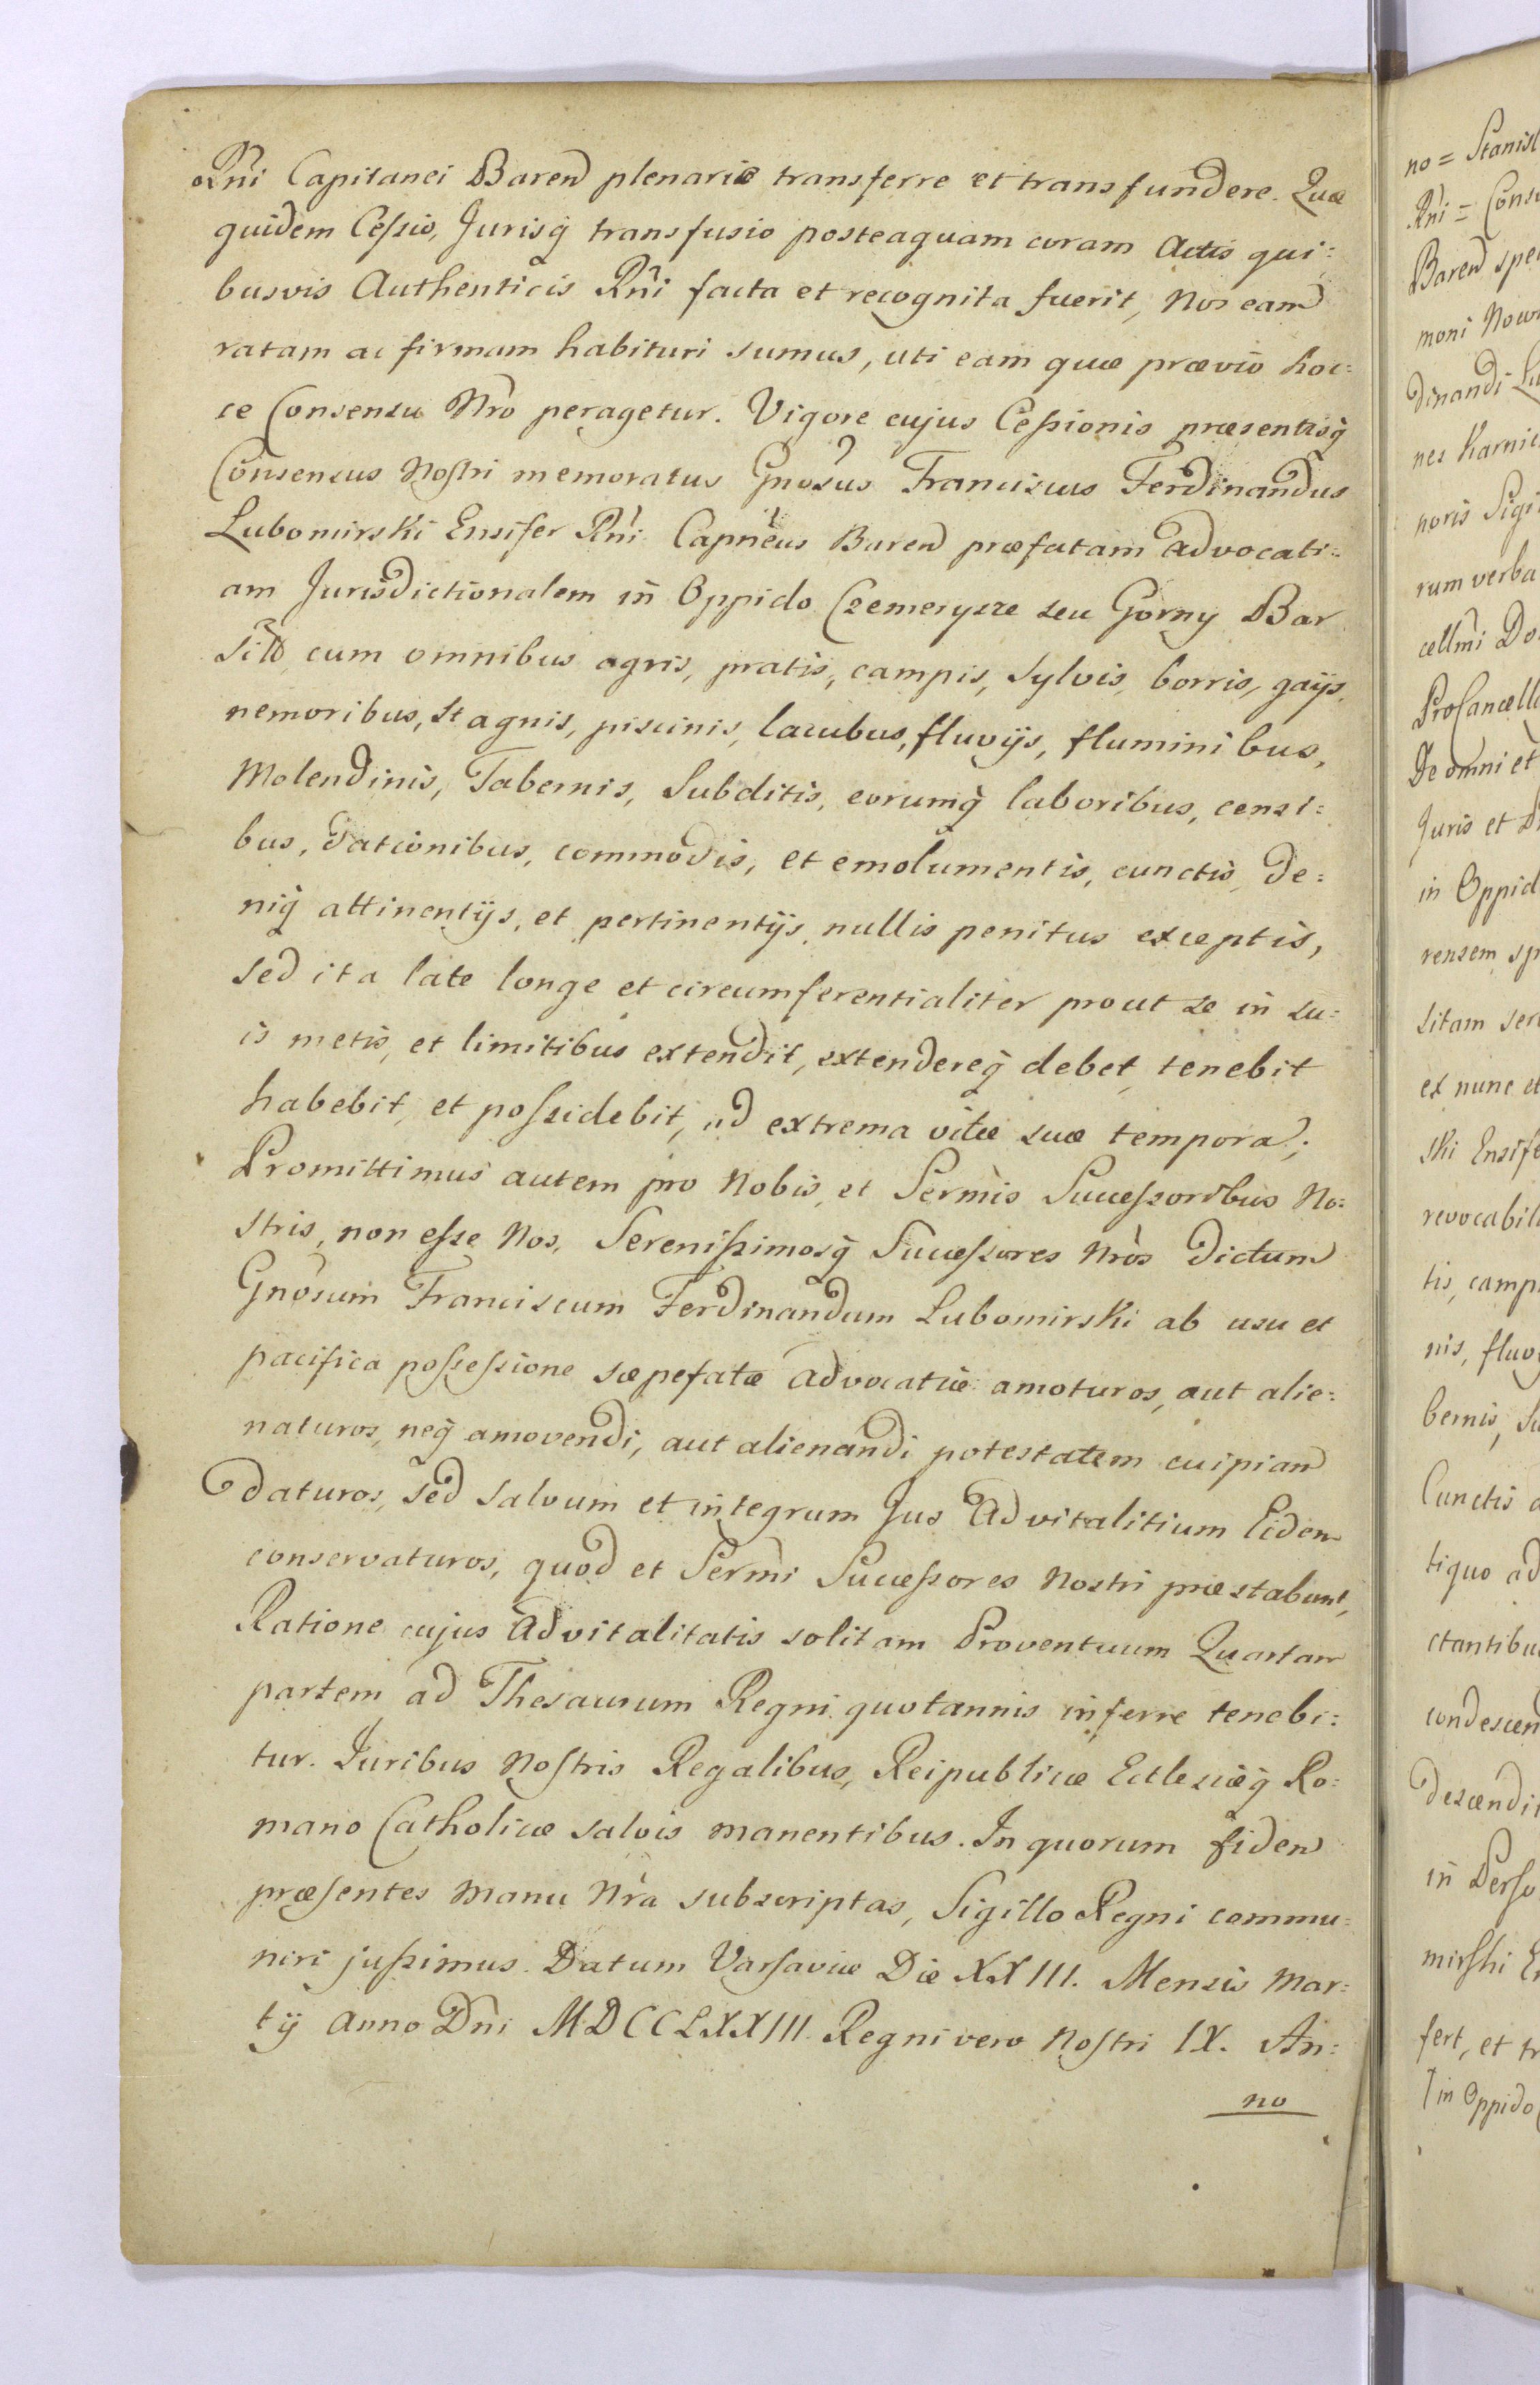 Rñi Capitanei Baren plenarie transferre et transfundere. Quæ
quidem Cessio, Jurisq̀ transfusio posteaquam coram Actis qui:
busvis Authenticis Rñi facta et recognita fuerit, Nos eam
ratam ac firmam habituri sumus, uti eam quæ prævio hoc:
ce Consensu Nrò peragetur. Vigore cujus Cessionis præsentisq̀
Consensus Nostri memoratus Gnosus Franciscus Ferdinandus
Lubomirski Ensifer Rñi Capnèus Baren præfatam Advocati:
am Jurisdictionalem in Oppido Czemerysze seu Gorny Bar
sitã cum omnibus agris, pratis, campis, sylvis, borris, gaijs,
nemoribus, stagnis, piscinis, lacubus, fluvijs, fluminibus,
Molendinis, Tabernis, Subditis, eorumq̀ laboribus, censi:
bus, dationibus, commodis, et emolumentis, cunctis, de:
niq̀ attinentijs, et pertinentijs, nullis penitus exceptis,
sed ita late longe et circumferentialiter prout se in su:
is metis, et limitibus extendit, extendereq̀ debet, tenebit
habebit, et possidebit, ad extrema vitæ suæ tempora;
Promittimus autem pro Nobis, et Sermìs Successoribus No:
stris, non esse Nos, Serenissimosq̀ Successores Nròs dictum
Gnosum Franciscum Ferdinandum Lubomirski ab usu et
pacifica possessione sæpefatæ Advocatiæ amoturos, aut alie:
naturos, neq̀ amovendi, aut alienandi potestatem cuipiam
daturos, sed salvum et integrum Jus Advitalitium Eidem
conservaturos, quod et Sermì Successores Nostri præstabunt,
Ratione cujus Advitalitatis solitam Proventuum Quartam
partem ad Thesaurum Regni quotannis inferre tenebi:
tur. Juribus Nostris Regalibus, Reipublicæ Ecclesiæq̀ Ro:
mano Catholicæ salvis manentibus. In quorum fidem
præsentes Manu Nrà subscriptas, Sigillo Regni commu:
niri jussimus. Datum Varsaviæ Die XXIII. Mensis Mar:
tij Anno Dni MDCCLXXIII. Regni vero Nostri IX. An:
no
no = Stanisl
Rñi = Cons
Baren spe
moni Now
dinandi Lu
nes Karnic
noris Sigi
rum verba
cellmì Do
ProCancell
De omni et
Juris et D
in Oppid
rensem sp
sitam ser
ex nunc et
ski Ensife
revocabil
tis, camp
nis, fluv
bernis, Su
Cunctis a
tiquo ad
ctantibu
condescen
descendi
in Perso
mirski E
fert, et tr
in Oppido